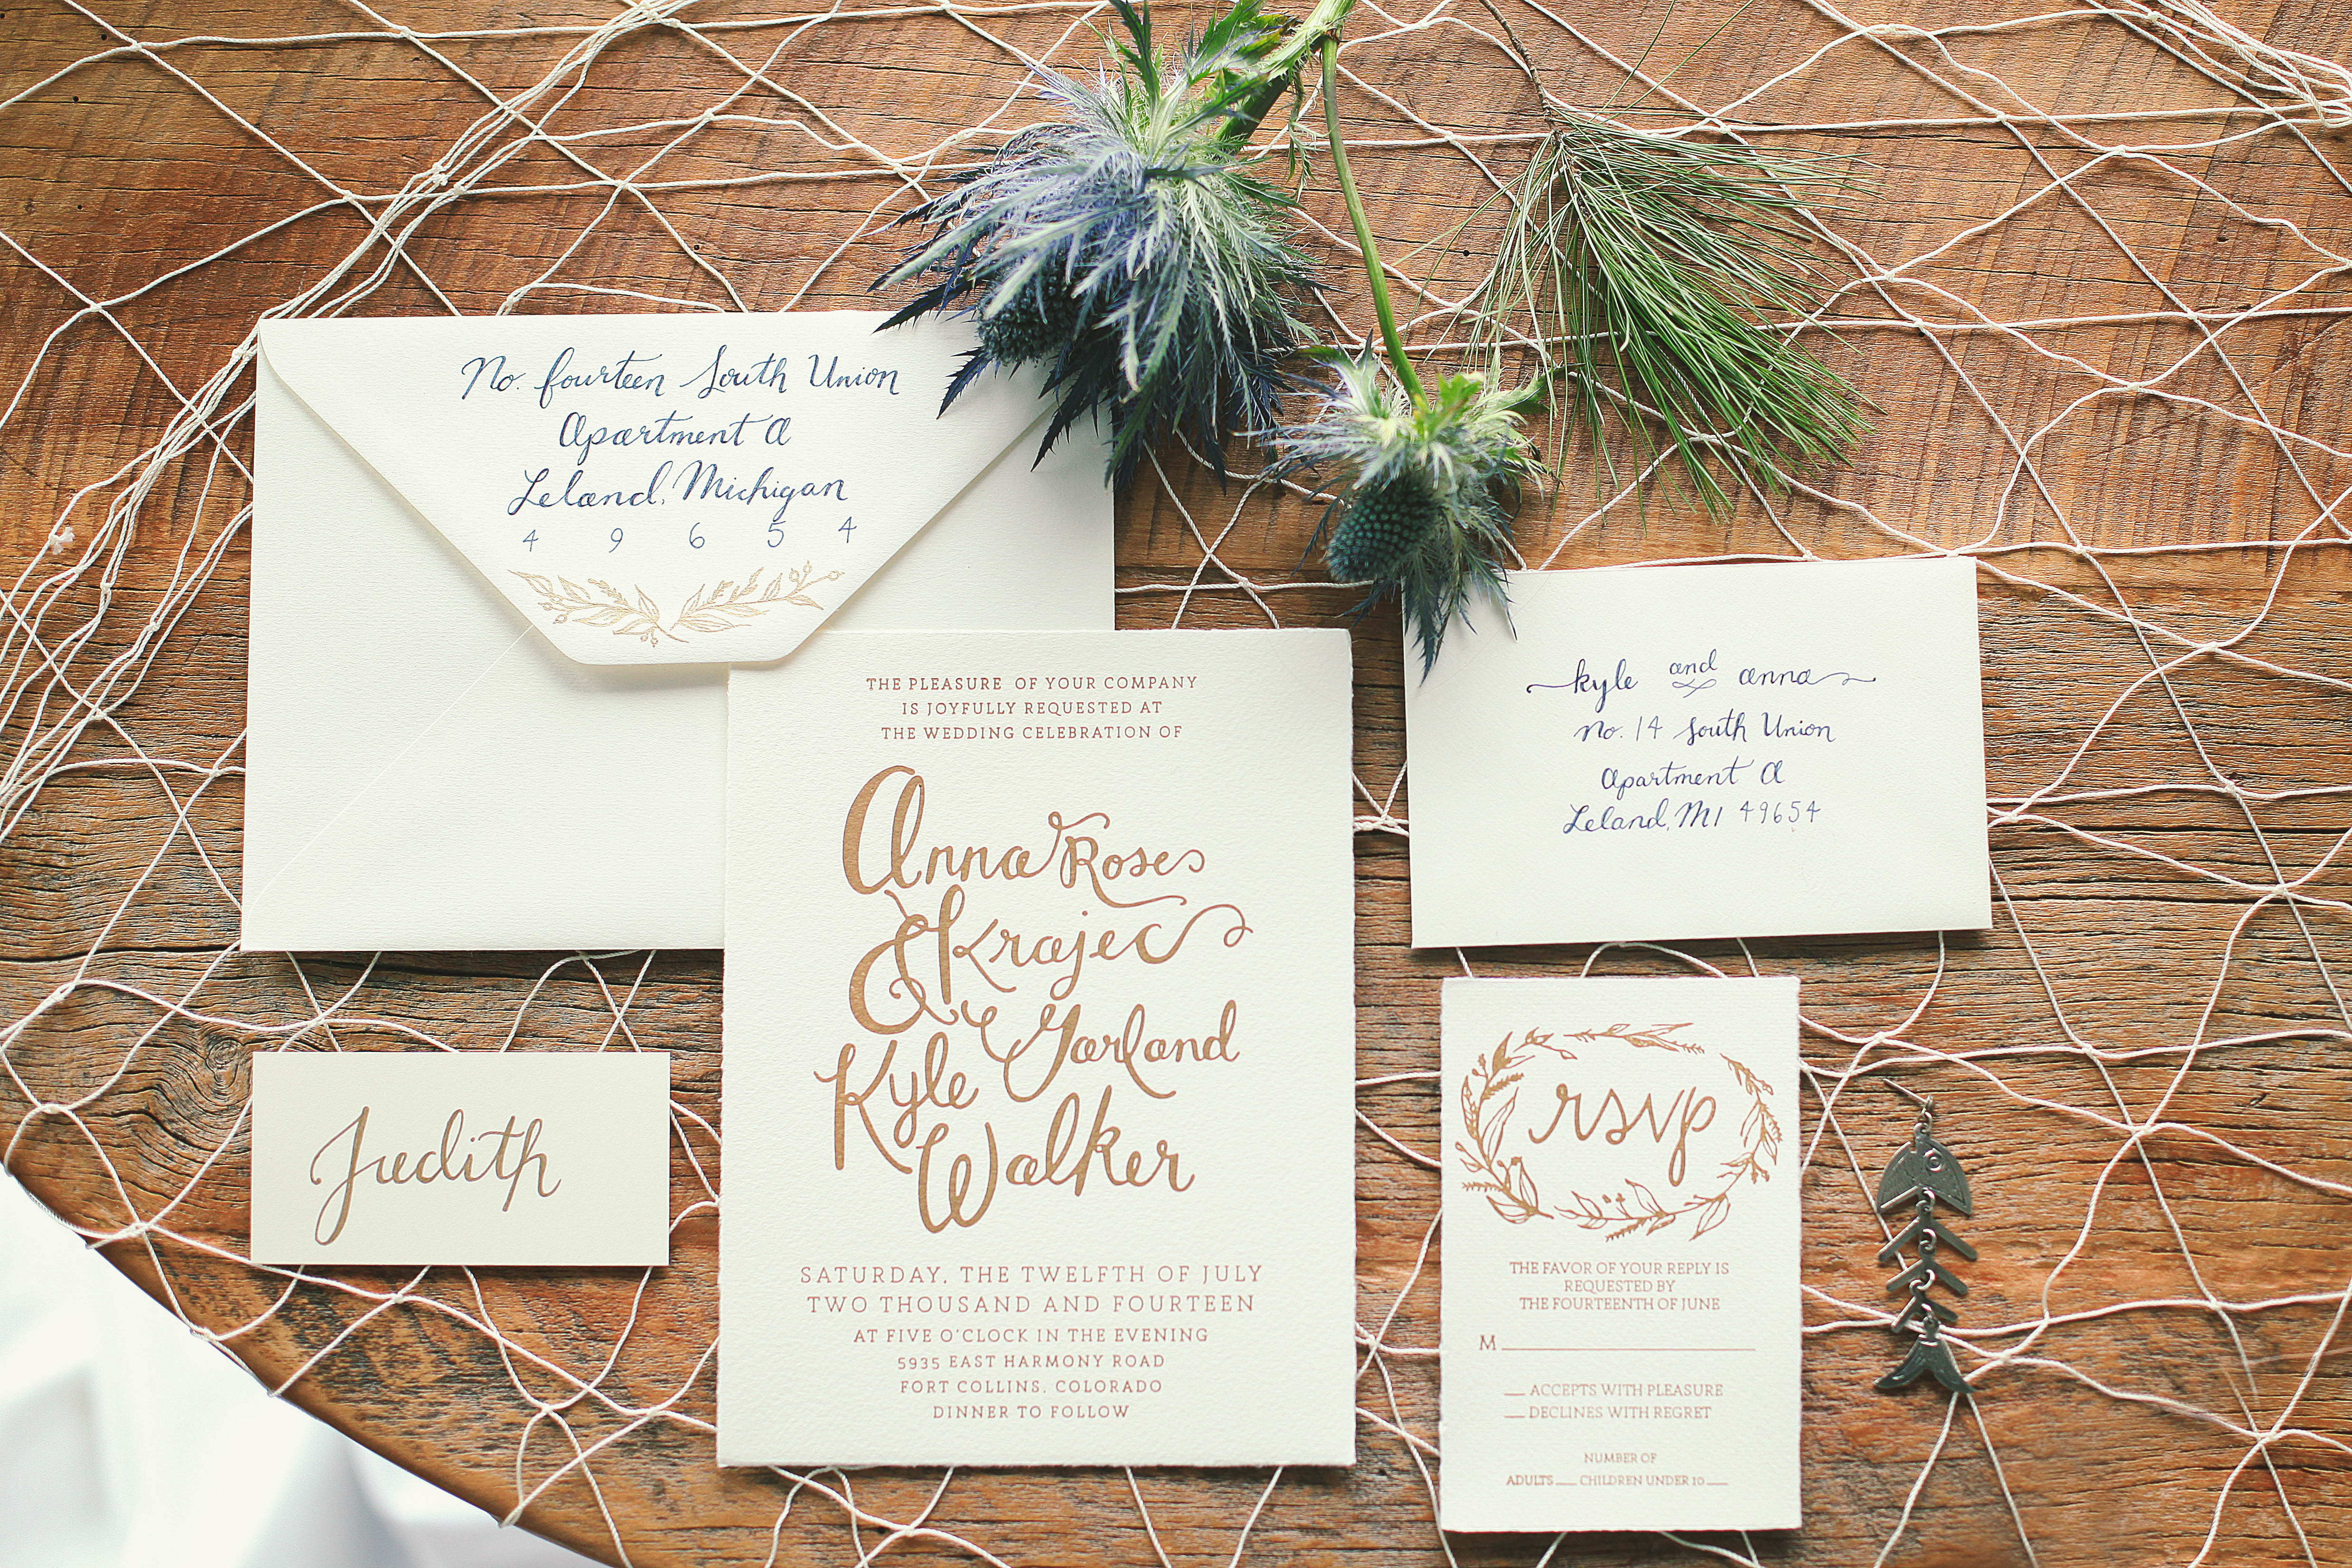 No. fourteen South Union
Apartment A
Leland, Michigan
4 9 6 5 4
THE PLEASURE OF YOUR COMPANY
IS JOYFULLY REQUESTED AT
THE WEDDING CELEBRATION OF
Anna Rose
Krajec
&
Kyle Garland
Walker
SATURDAY, THE TWELFTH OF JULY
TWO THOUSAND AND FOURTEEN
AT FIVE O'CLOCK IN THE EVENING
5935 EAST HARMONY ROAD
FORT COLLINS, COLORADO
DINNER TO FOLLOW
Judith
kyle and anna
No. 14 South Union
Apartment A
Leland, MI 49654
rsvp
THE FAVOR OF YOUR REPLY IS
REQUESTED BY
THE FOURTEENTH OF JUNE
M
ACCEPTS WITH PLEASURE
DECLINES WITH REGRET
NUMBER OF
ADULTS CHILDREN UNDER 10